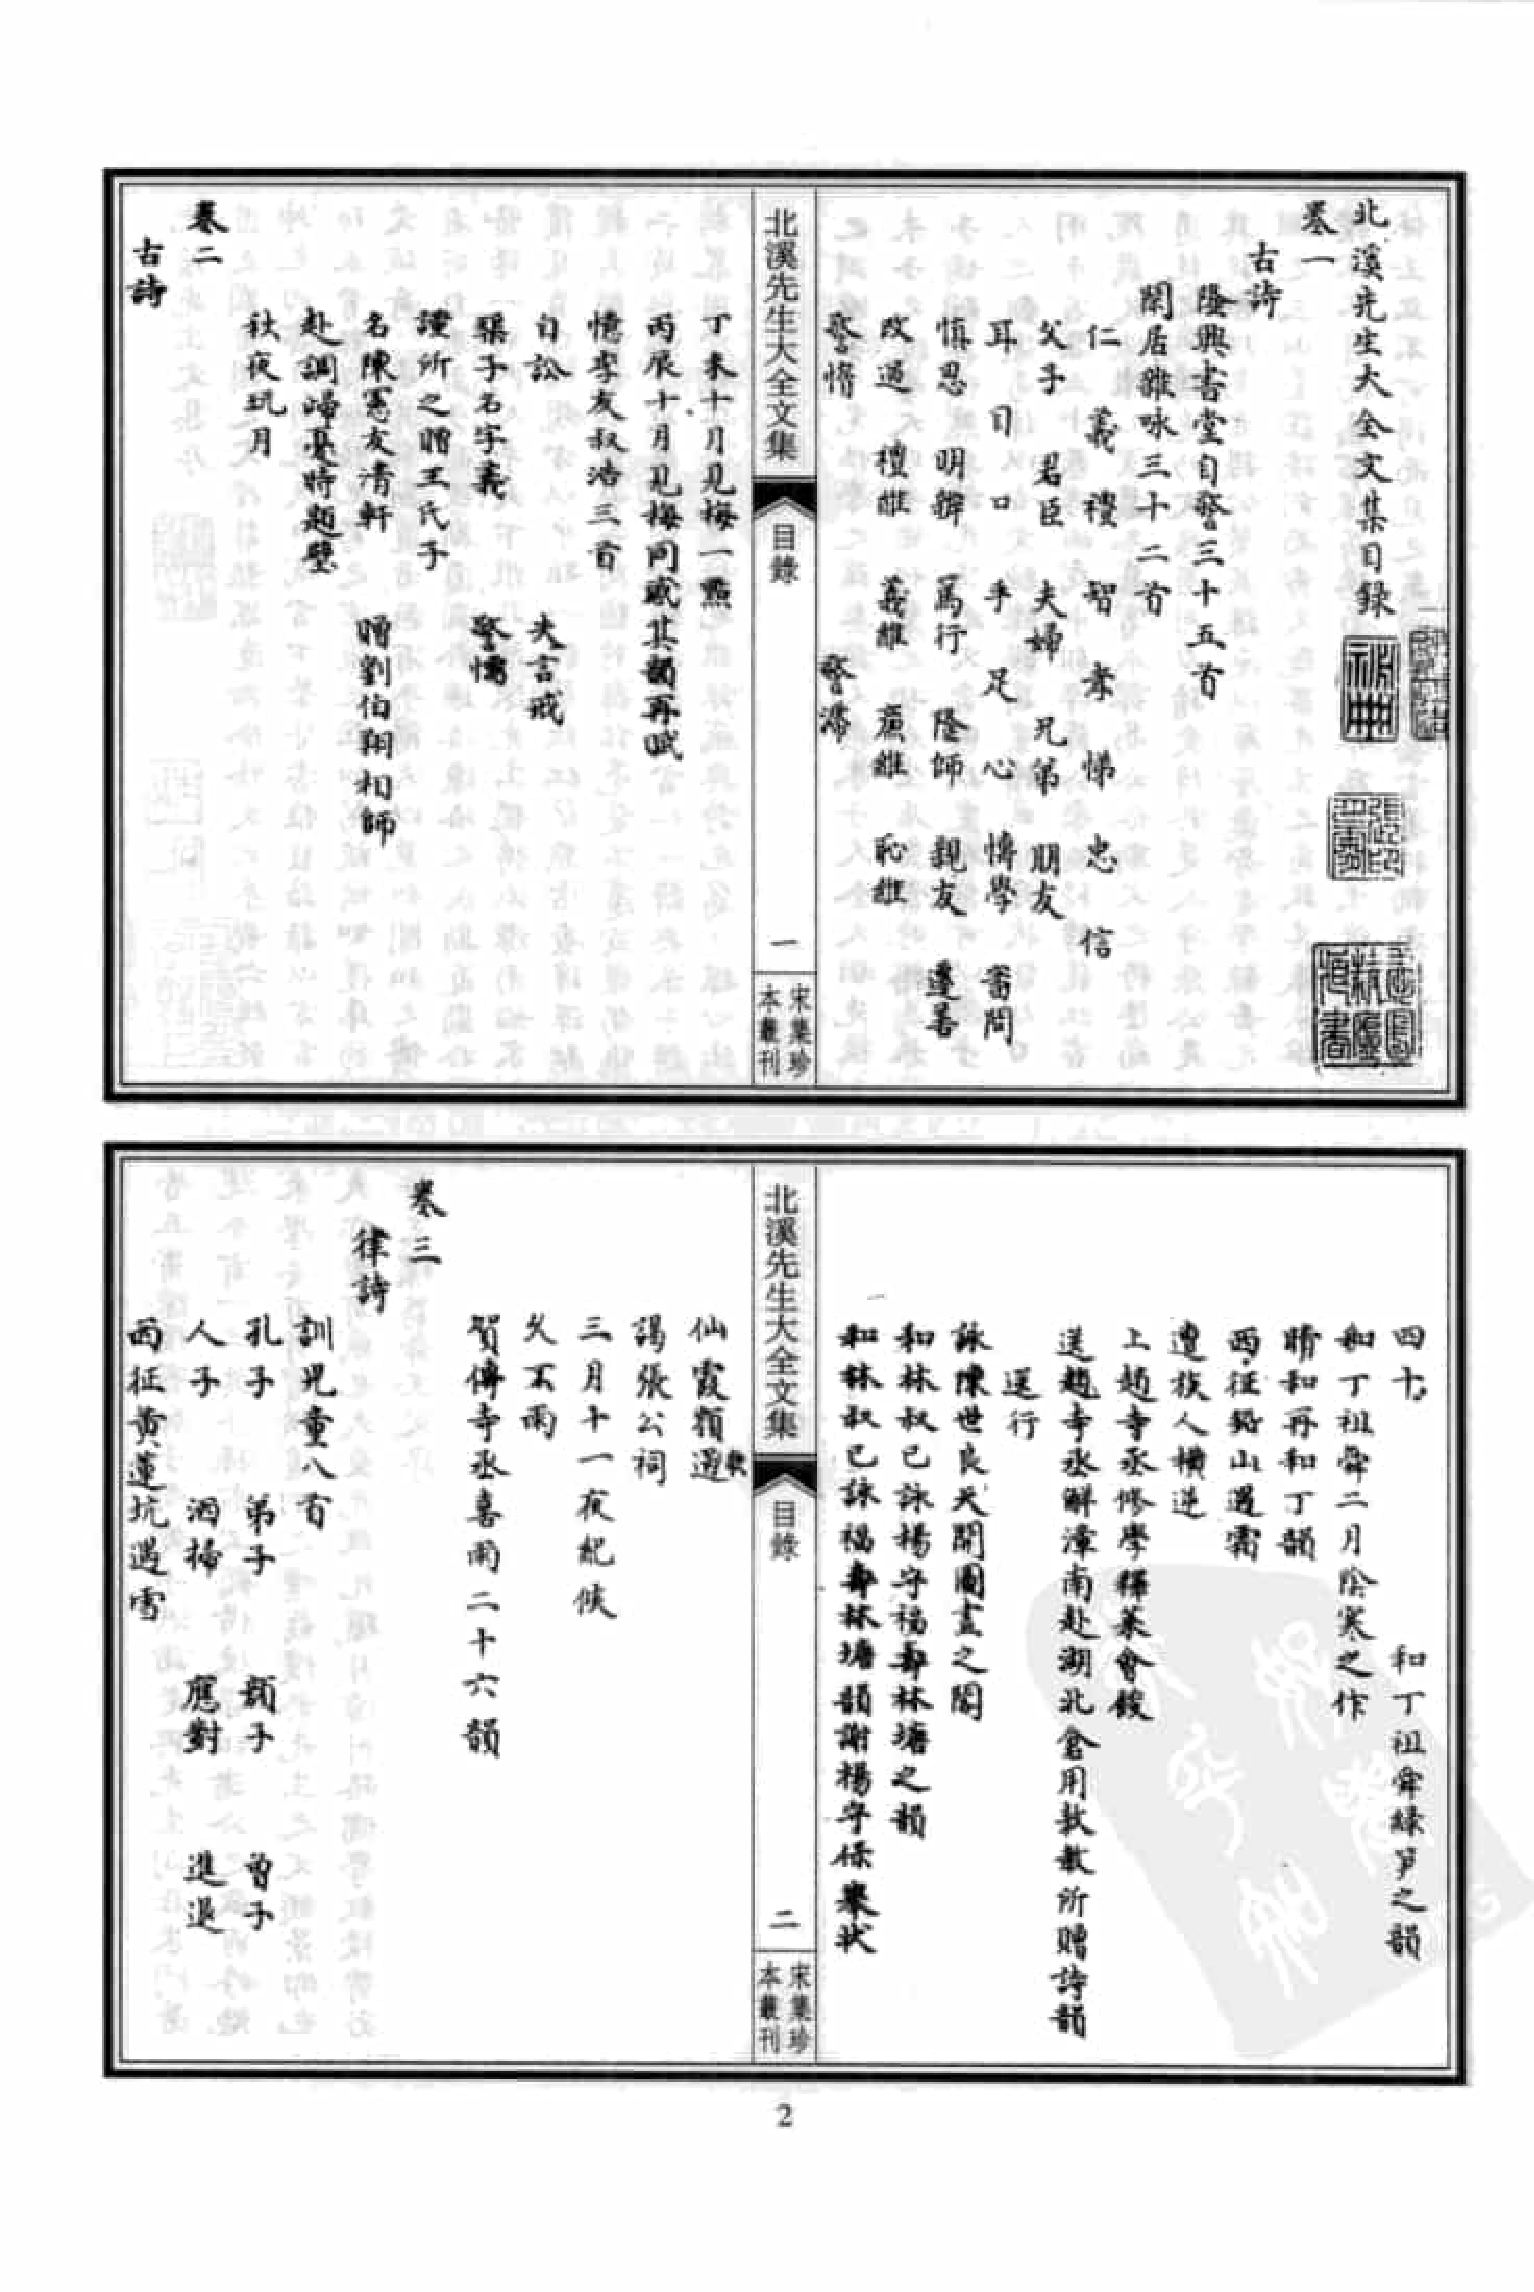 北溪先生大全文集目録
卷一
古詩
隆興書堂自警三十五首
閑居雜咏三十二首
仁 義 禮 智 孝 悌 忠 信
父子 君臣 夫婦 兄弟 朋友
耳 目 口 手 足 心 博學 審問
慎思 明辨 篤行 隆師 親友 遷善
改過 禮維 義維 廉維 恥維
警惰 警滯
北溪先生大全文集
目錄
一
宋集珍
本叢刊
丁未十月見梅一點
丙辰十月見梅同感其韻再賦
憶李友叔浩三首
自訟 失言戒
渠子名字義 警惰
謹所之贈王氏子
名陳憲友清軒 贈劉伯翔相師
赴調歸憂時題壁
秋夜玩月
卷二
古詩
四十 和丁祖舜緑笋之韻
和丁祖舜二月陰寒之作
晴和再和丁韻
西征鉛山遇霜
遭族人橫逆
上趙寺丞修學釋菜會餕
送趙寺丞解漳南赴湖北倉用敖教所贈詩韻
送行
詠陳世良天開圖畫之閣
和林叔已詠楊守福壽林塘之韻
和林叔已詠福壽林塘韻謝楊守保舉狀
北溪先生大全文集
目錄
二
宋集珍
本叢刊
仙霞嶺遇
謁張公祠
三月十一夜紀候
久不雨
賀傅寺丞喜雨二十六韻
卷三
律詩
訓兒童八首
孔子 弟子 顔子 曾子
人子 洒掃 應對 進退
西征黄蓮坑遇雪
2